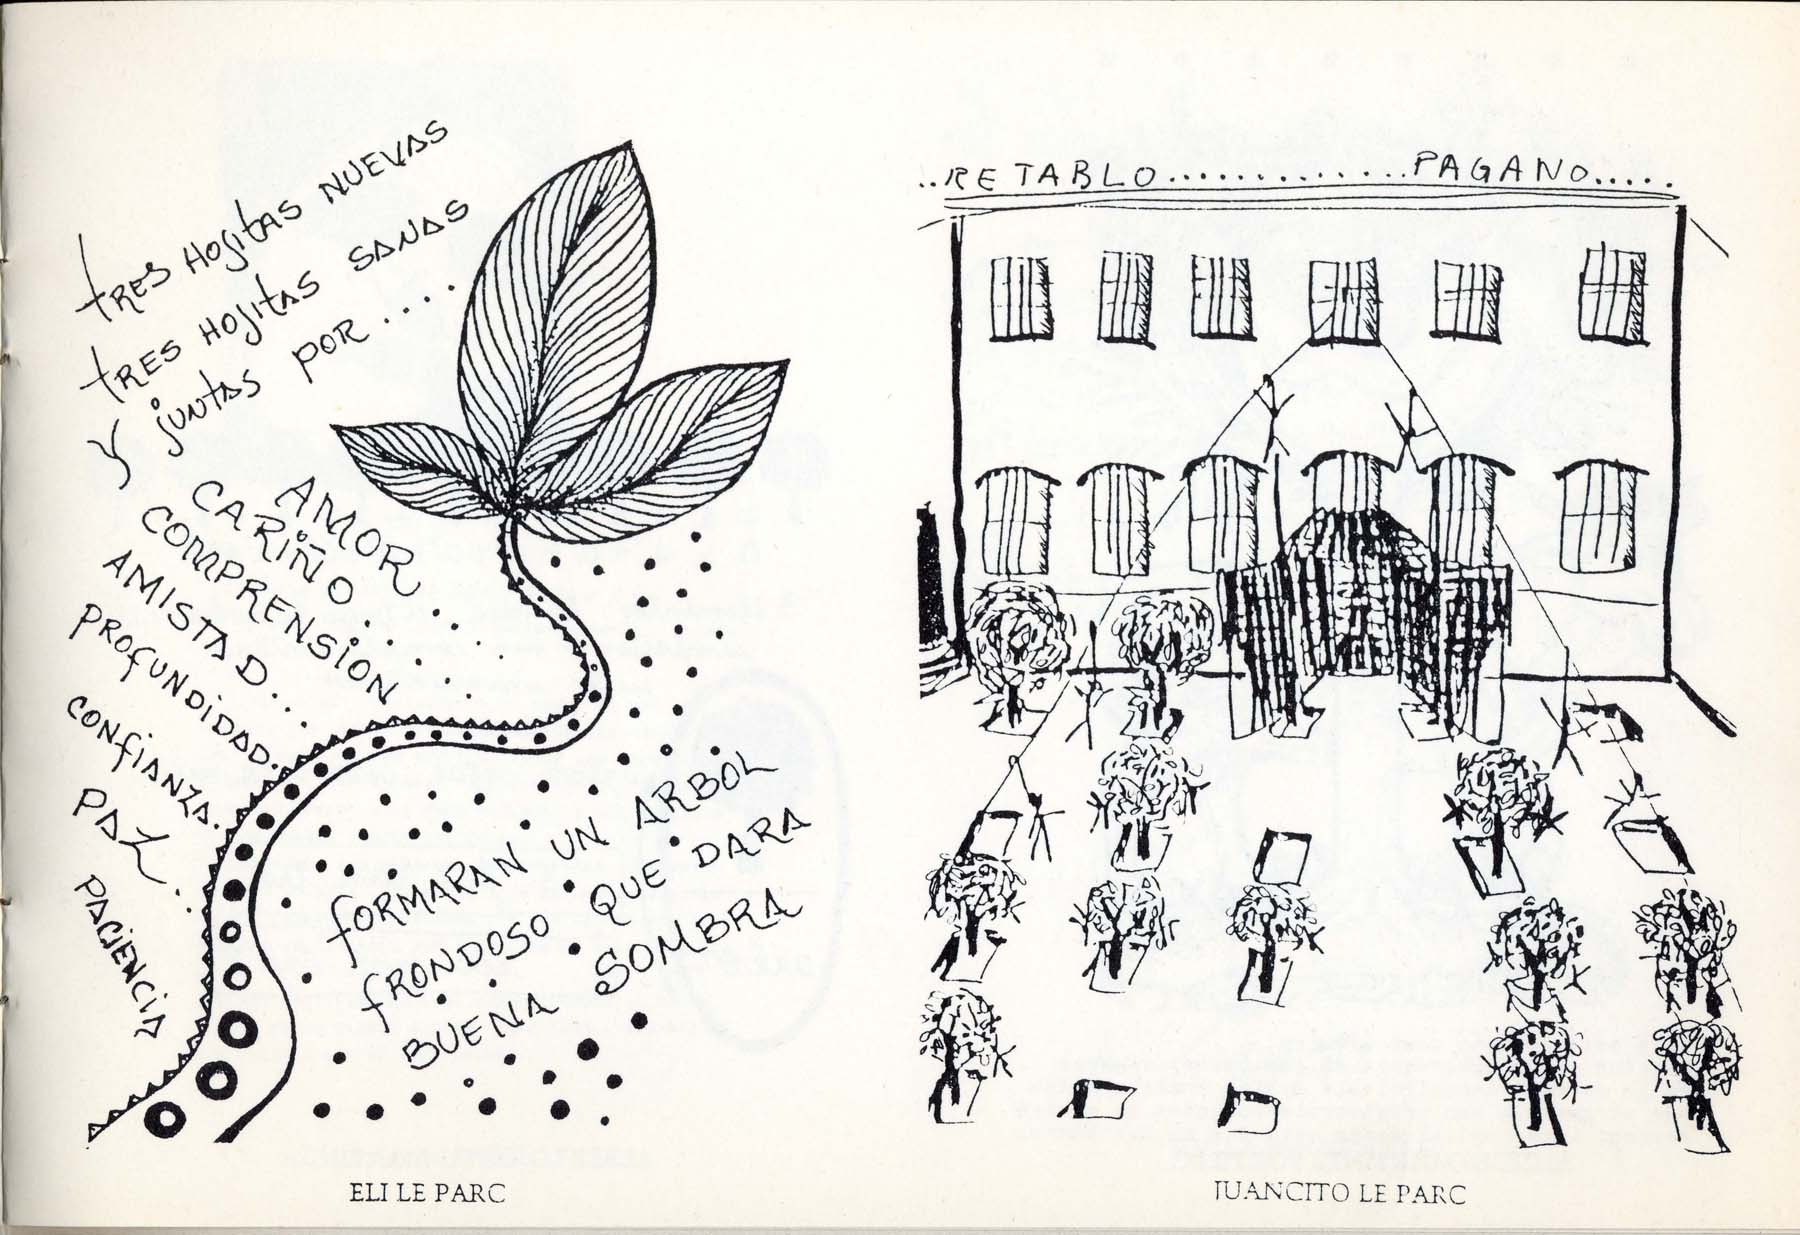 tRES HOJItAS NUEVAS
tRES HOJItAS SANAS
Y JUNTAS POR....
AMOR..
CARIÑO...
COMPRENSION
AMISTAD...
PROFUNDIDAD.
CONFIANZA.
PAZ..
PACIENCIA
FORMARAN UN ARBOL
FRONDOSO QUE DARA
BUENA SOMBRA
ELI LE PARC
..RETABLO.............PAGANO.....
JUANCITO LE PARC